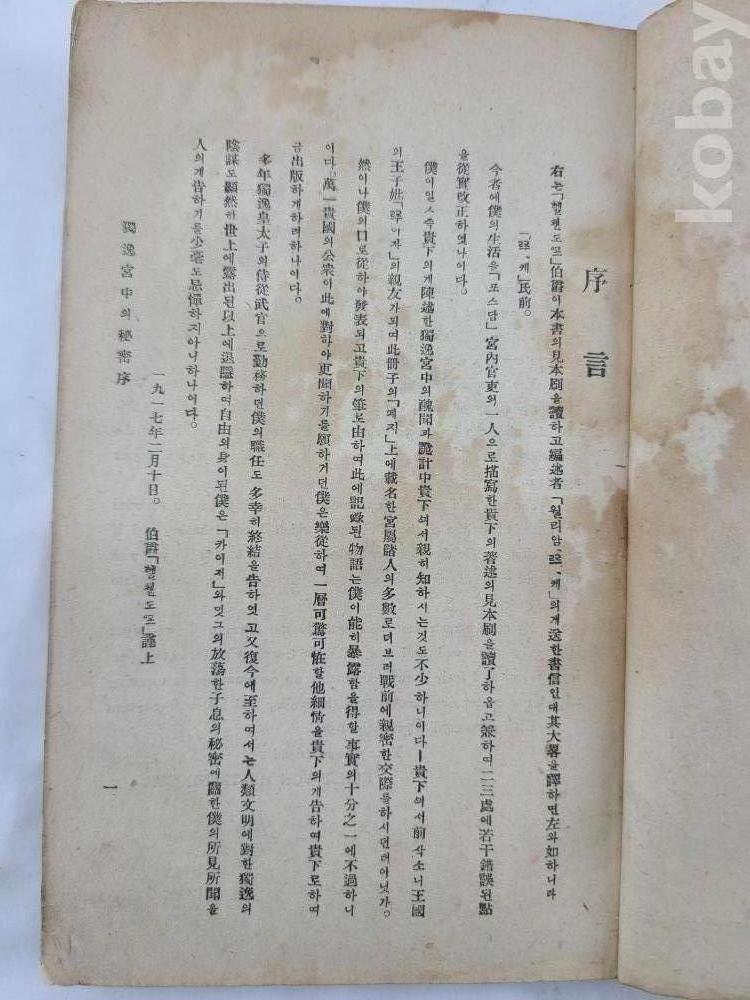 序言
右는「헬첸도르」伯爵이本書의見本刷을讀하고編述者「월리암、르、케」의게送한書信인대其大畧을譯하면左와如하니라
「르、케」氏前。
今者에僕의生活을「포스담」宮內官吏의一人으로描寫한貴下의著述의見本刷을讀了하옵고兼하여二三處에若干錯誤된點
을從實改正하엿나이다。
僕이일스즉貴下의게陳述한獨逸宮中의醜聞과詭計中貴下셔서親히知하시는것도不少하니이다ー貴下의서前삭소니王國
의王子妣「루이자」의親友가되며此冊子의「페지」上에載名한宮屬諸人의多數로더브러戰前에親密한交際를하시던터아닛가。
然이나僕의口로從하야發表되고貴下의筆로由하여此에記錄된物語는僕이能히暴露함을得할事實의十分之一에不過하니
이다。萬一貴國의公衆이此에對하야更聞하기를願하거던僕은樂從하여一層可驚可怪할他細情을貴下의게告하여貴下로하여
금出版하게하려하나이다。
多年獨逸皇太子의侍從武官으로勤務하던僕의職任도多幸히終結을告하엿고又復今에至하여서는人類文明에對한獨逸의
陰謀도顯然히世上에露出된以上에退隱하여自由의身이된僕은「카이저」와밋그의放蕩한子息의秘密에關한僕의所見所聞을
人의게告하기를少毫도忌憚하지아니하나이다。
一九一七年二月十日。 伯爵「헬첸도르」謹上
獨逸宮中의秘密序
一
kobay